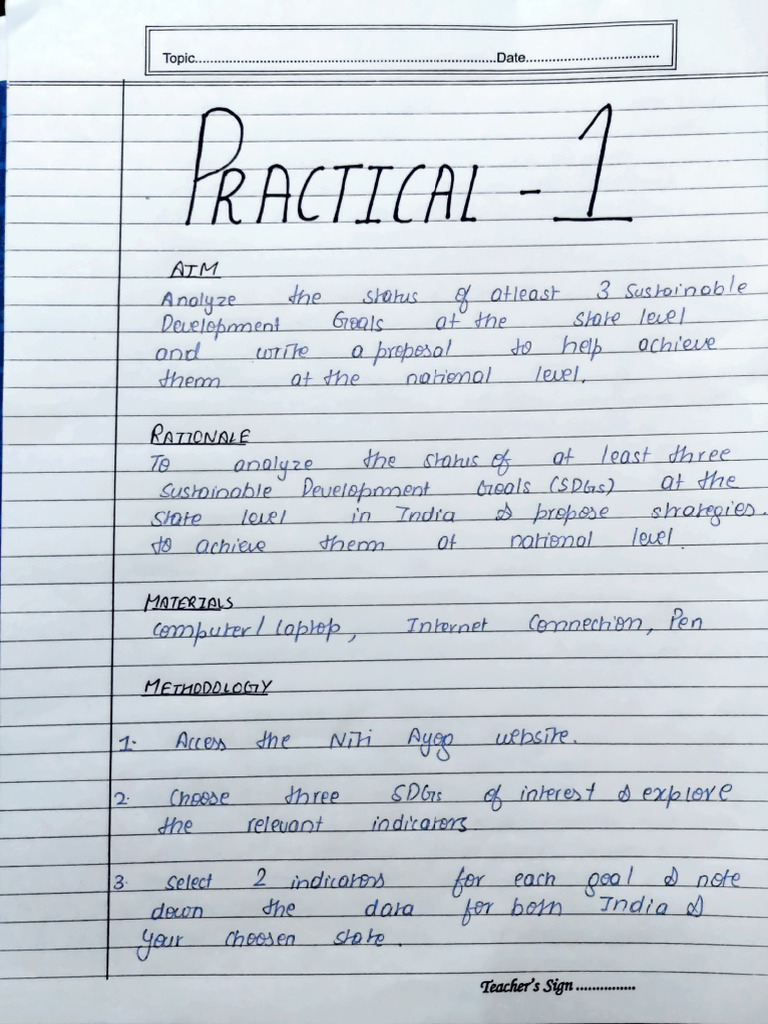 Topic..........................................................................Date..................................
PRACTICAL - 1
AIM
Analyze the status of atleast 3 Sustainable
Development Goals at the state level
and write a proposal to help achieve
them at the national level.
RATIONALE
To analyze the status of at least three
Sustainable Development Goals (SDGs) at the
state level in India & propose strategies.
to achieve them at national level.
MATERIALS
Computer/laptop, Internet Connection, Pen
METHODOLOGY
1. Access the Niti Ayog website.
2. Choose three SDGs of interest & explore
the relevant indicators.
3. Select 2 indicators for each goal & note
down the data for both India &
your choosen state.
Teacher's Sign ...............